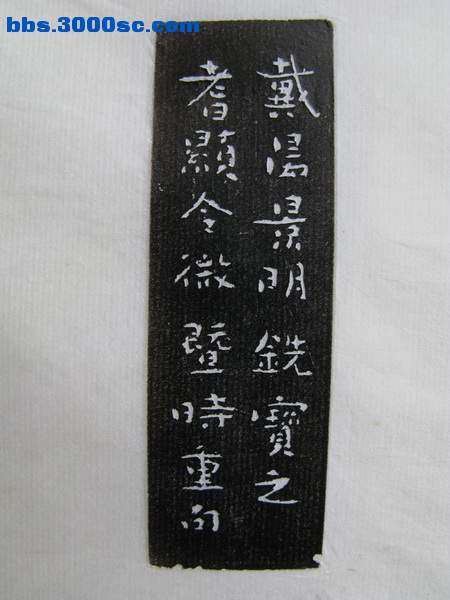 bbs.3000sc.com
戴景明銑寶之
耆顯令微暨時重向